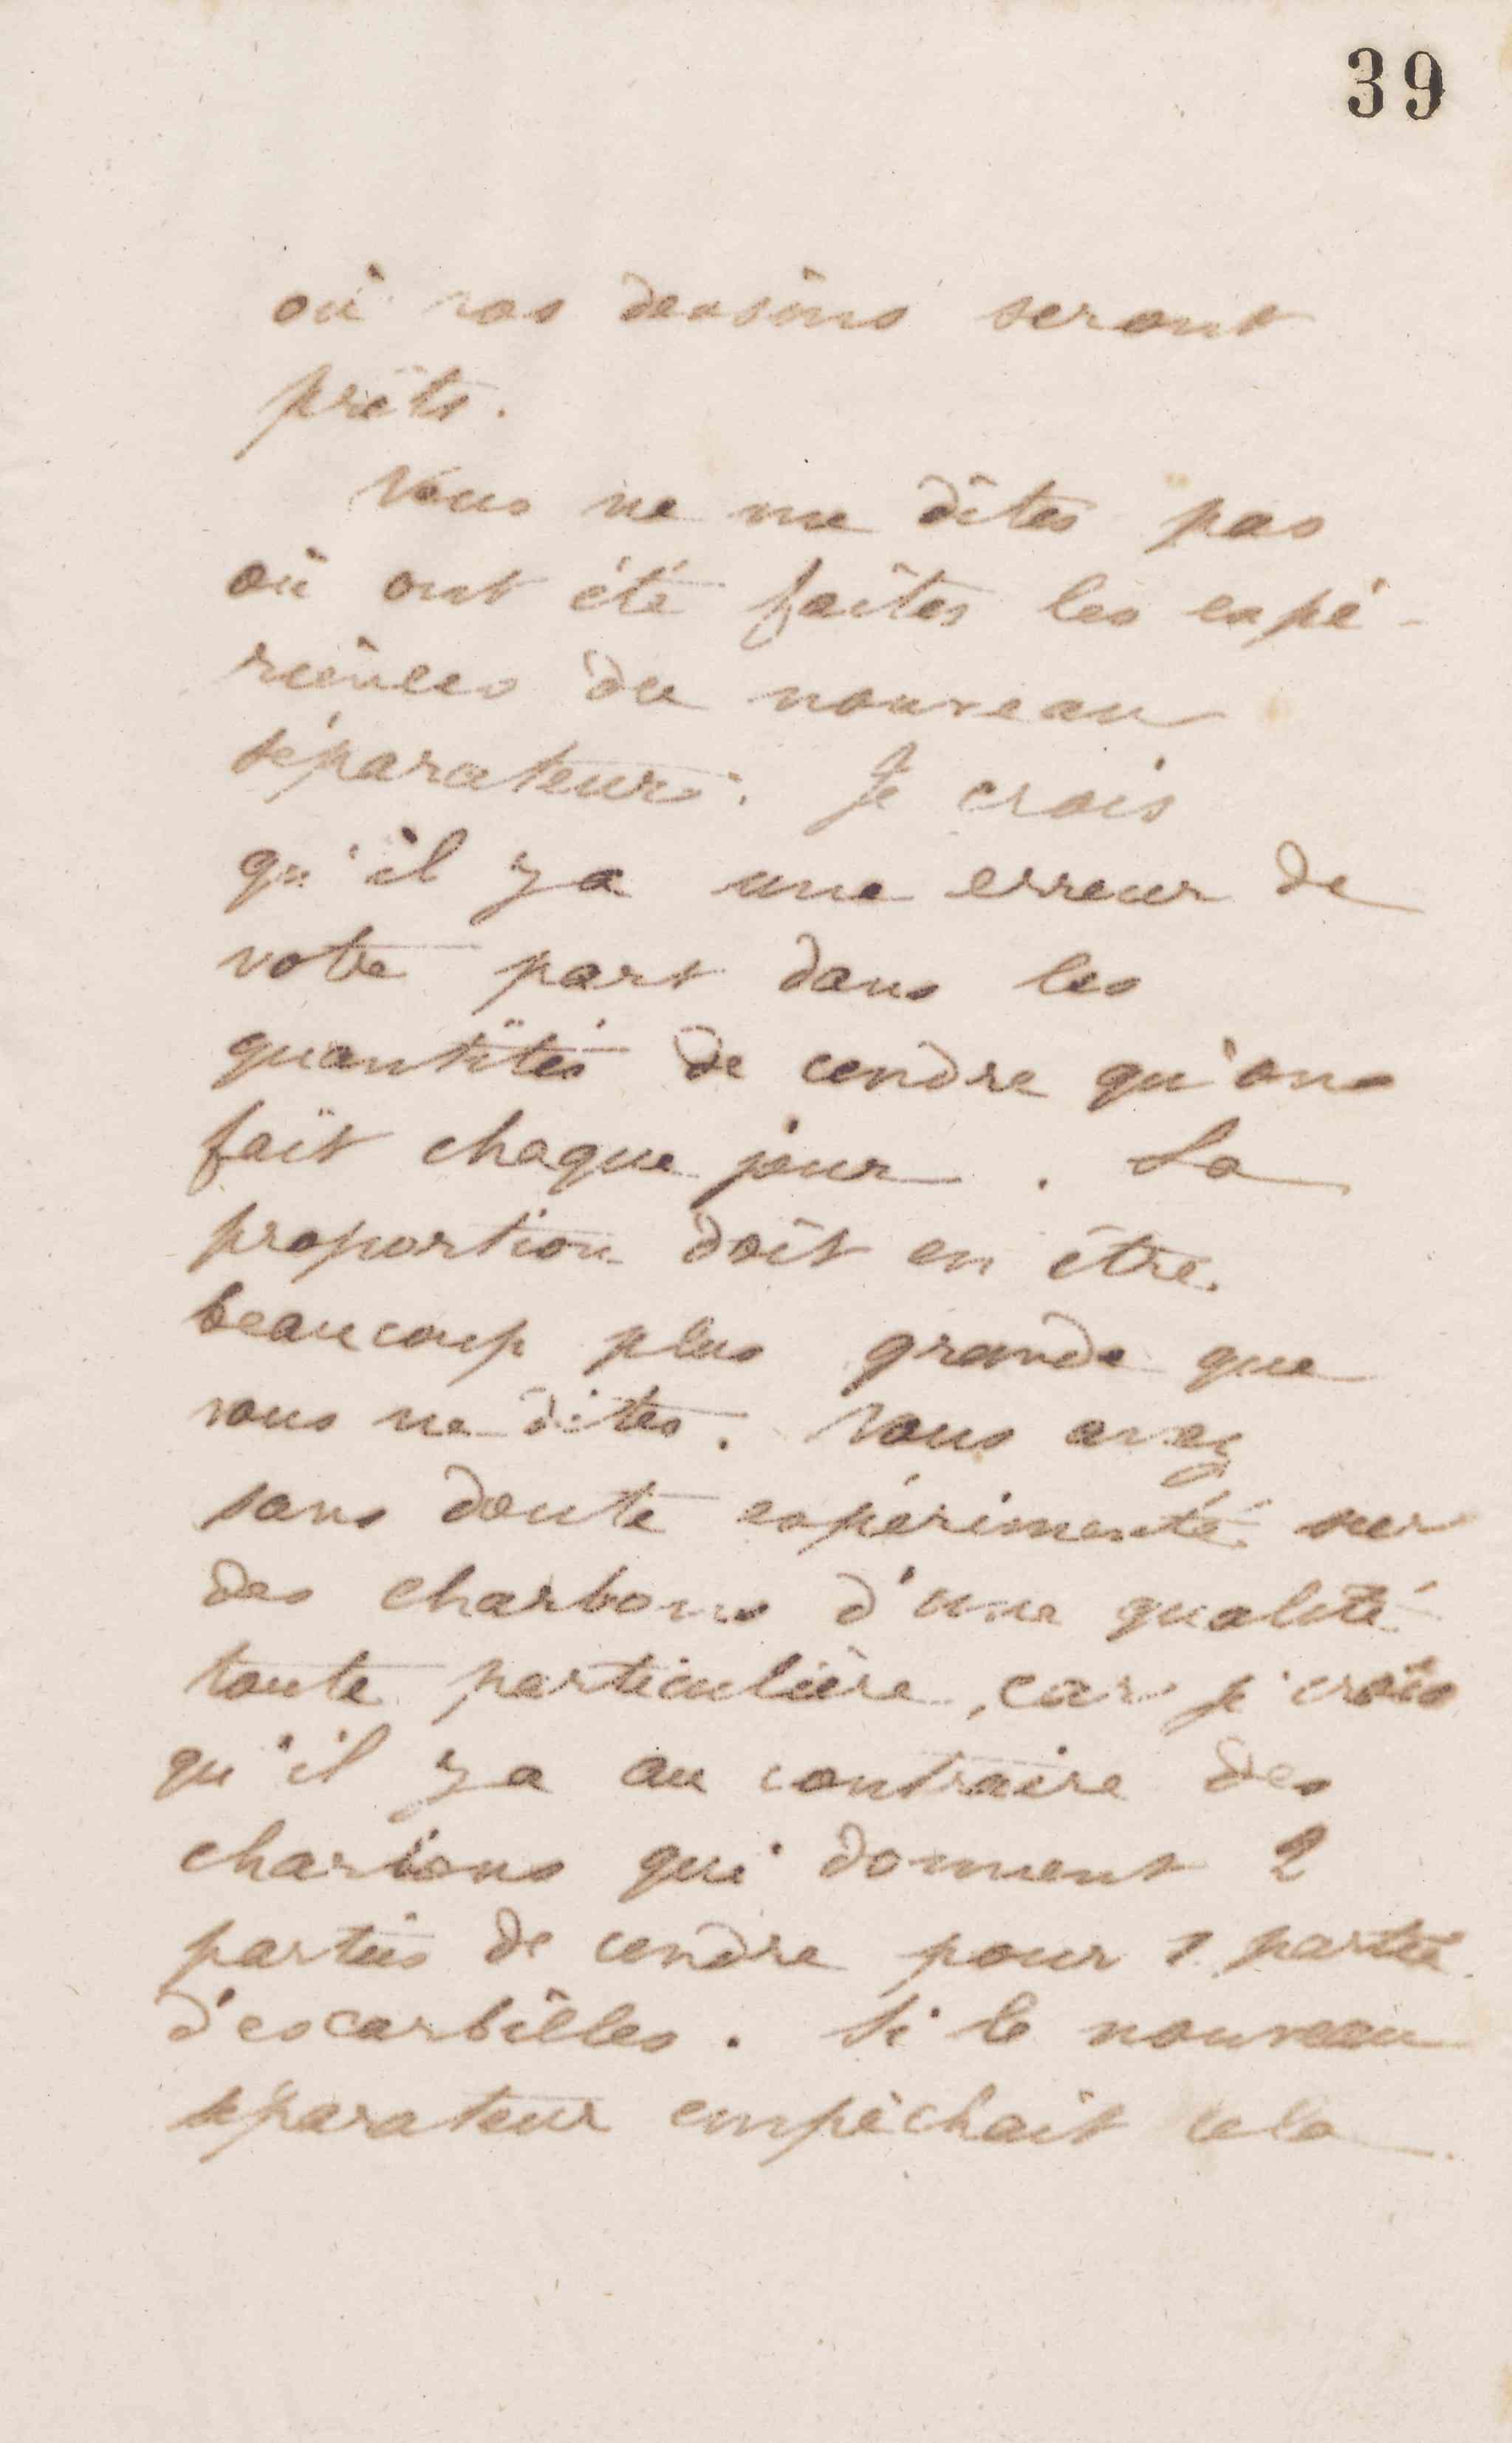 39
où vos dessins seront
prêts.
Vous ne me dites pas
où ont été faites les expé-
riences du nouveau
séparateur. Je crois
qu'il y a une erreur de
votre part dans les
quantités de cendre qu'on
fait chaque jour. La
proportion doit en être
beaucoup plus grande que
vous ne dites. Vous avez
sans doute expérimenté sur
des charbons d'une qualité
toute particulière, car je crois
qu'il y a au contraire des
charbons qui donnent 2
parties de cendre pour 1 partie
d'escarbilles. Si le nouveau
séparateur empêchait cela